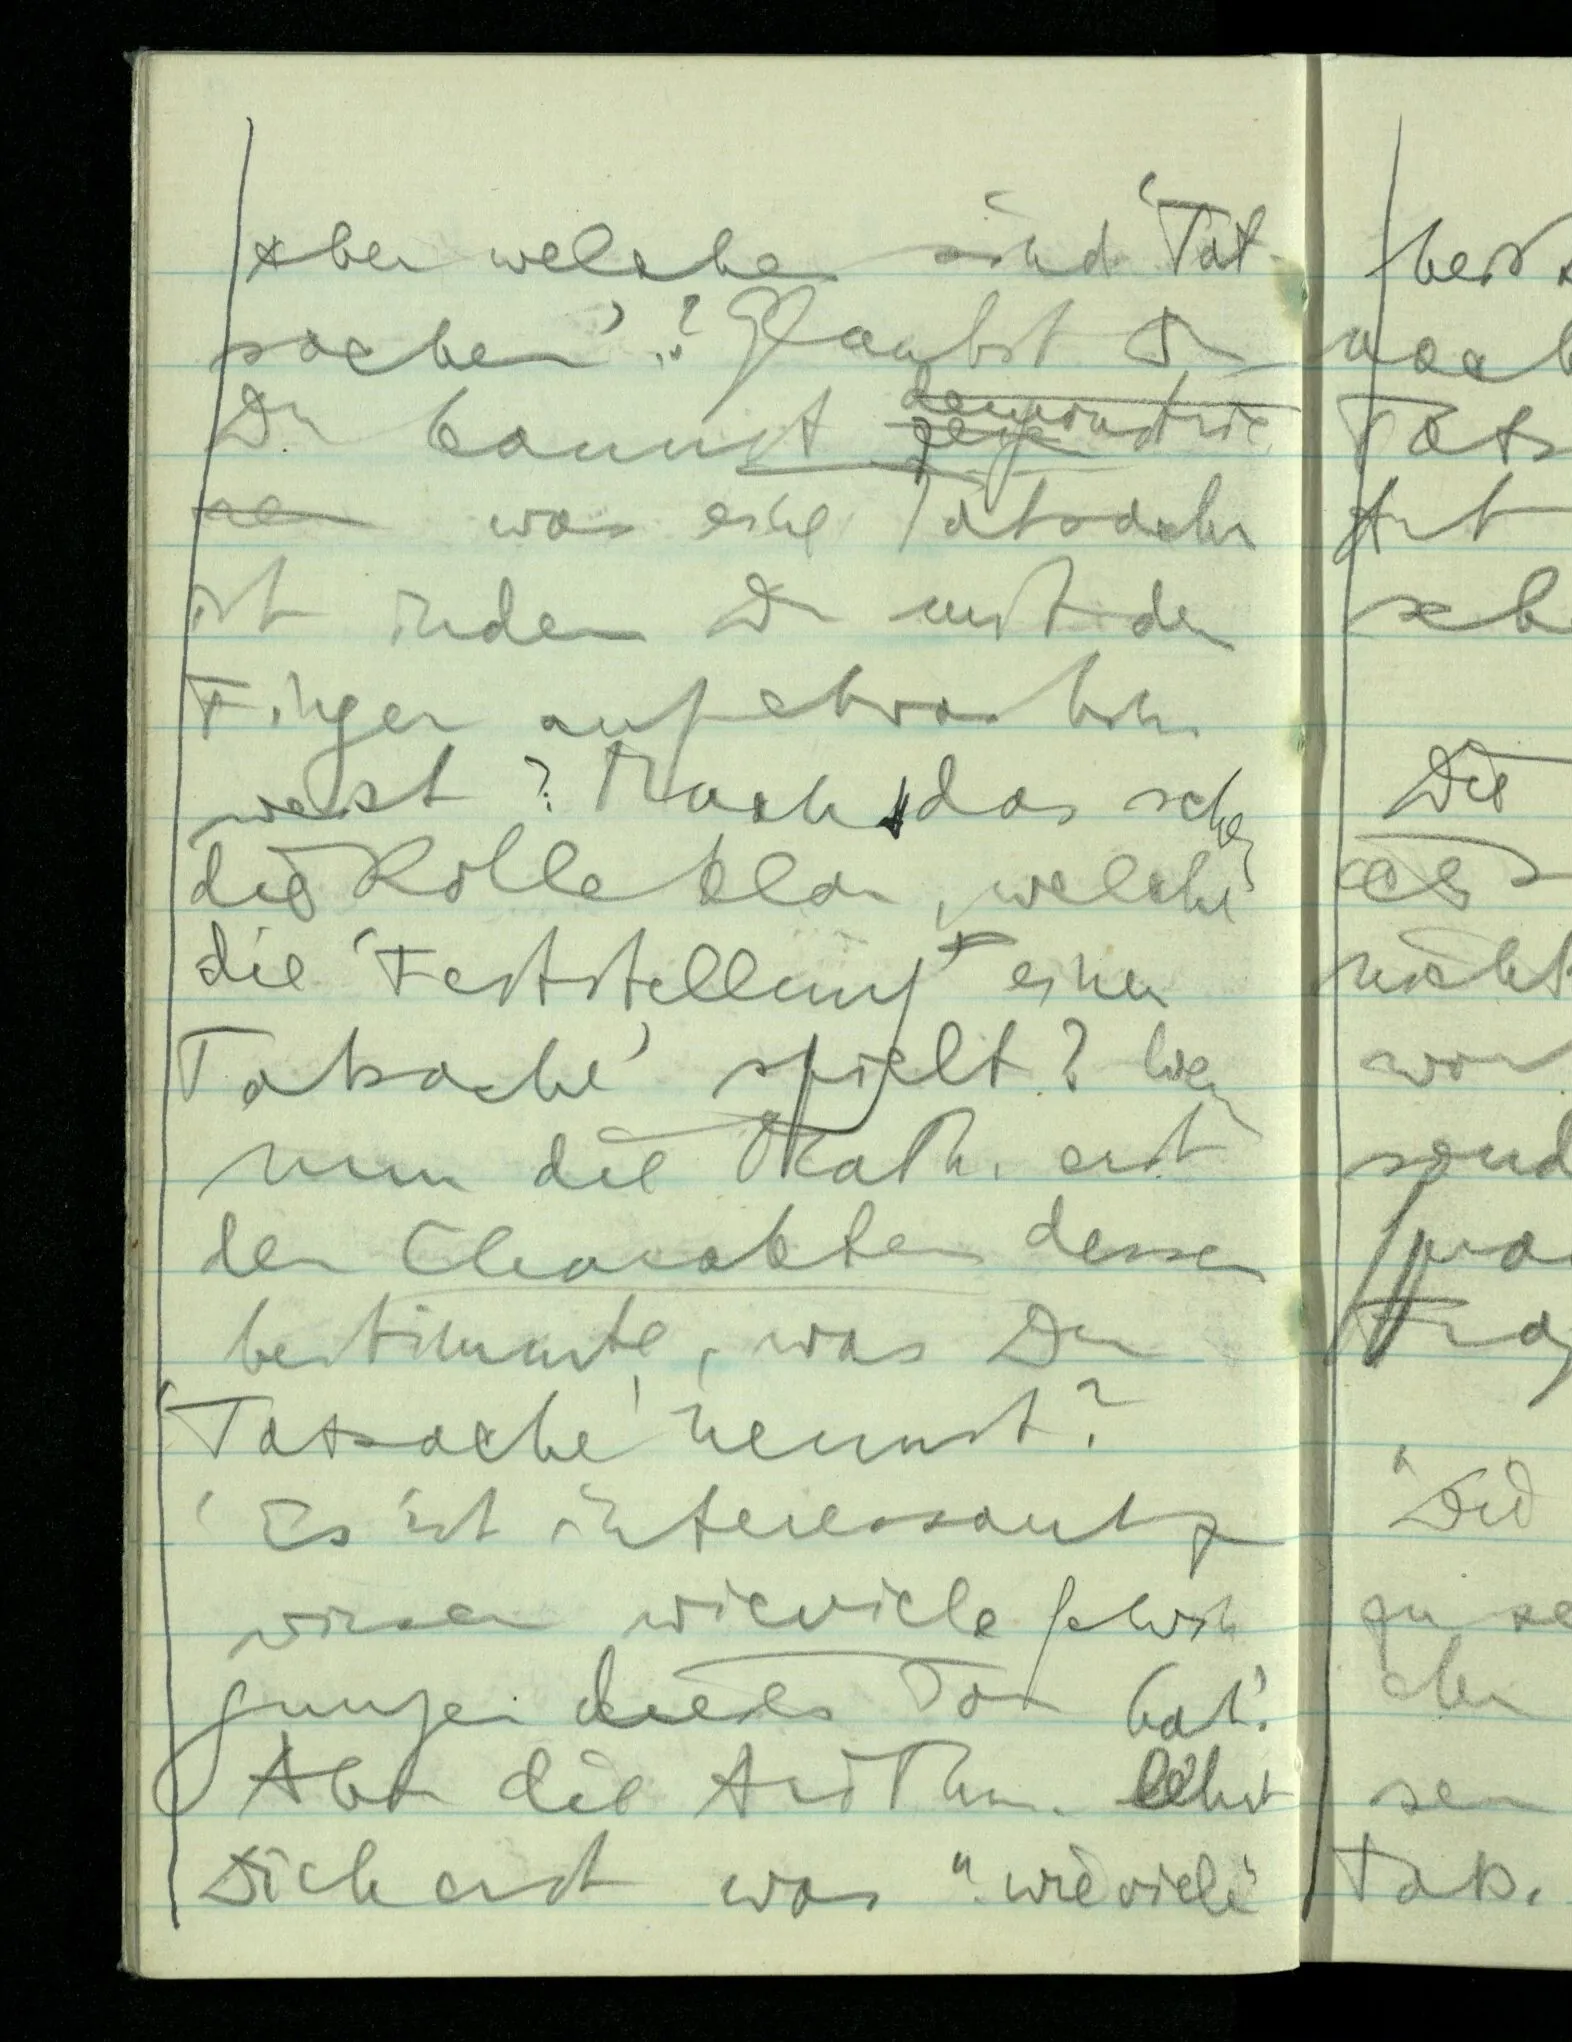 Aber welches sind 'Tat-
sachen'? Glaubst Du
Du kannst demonstrie
zeigen
ren was eine Tatsache
ist indem Du mit dem
Finger auf etwas hin-
weist? Macht das schon
die Rolle klar, welche
die 'Feststellung' einer
Tatsache' spielt? Wenn
nun die Math. erst
den Charakter dessen
bestimmte, was Du
'Tatsache' nennst?
'Es ist interessant zu
wissen wieviele Schwin
gungen dieser Ton hat'.
Aber die Arithm. lehrt
Dich erst was "wieviele"
Die
es
nicht
sond
"Die
zu se
Tats.